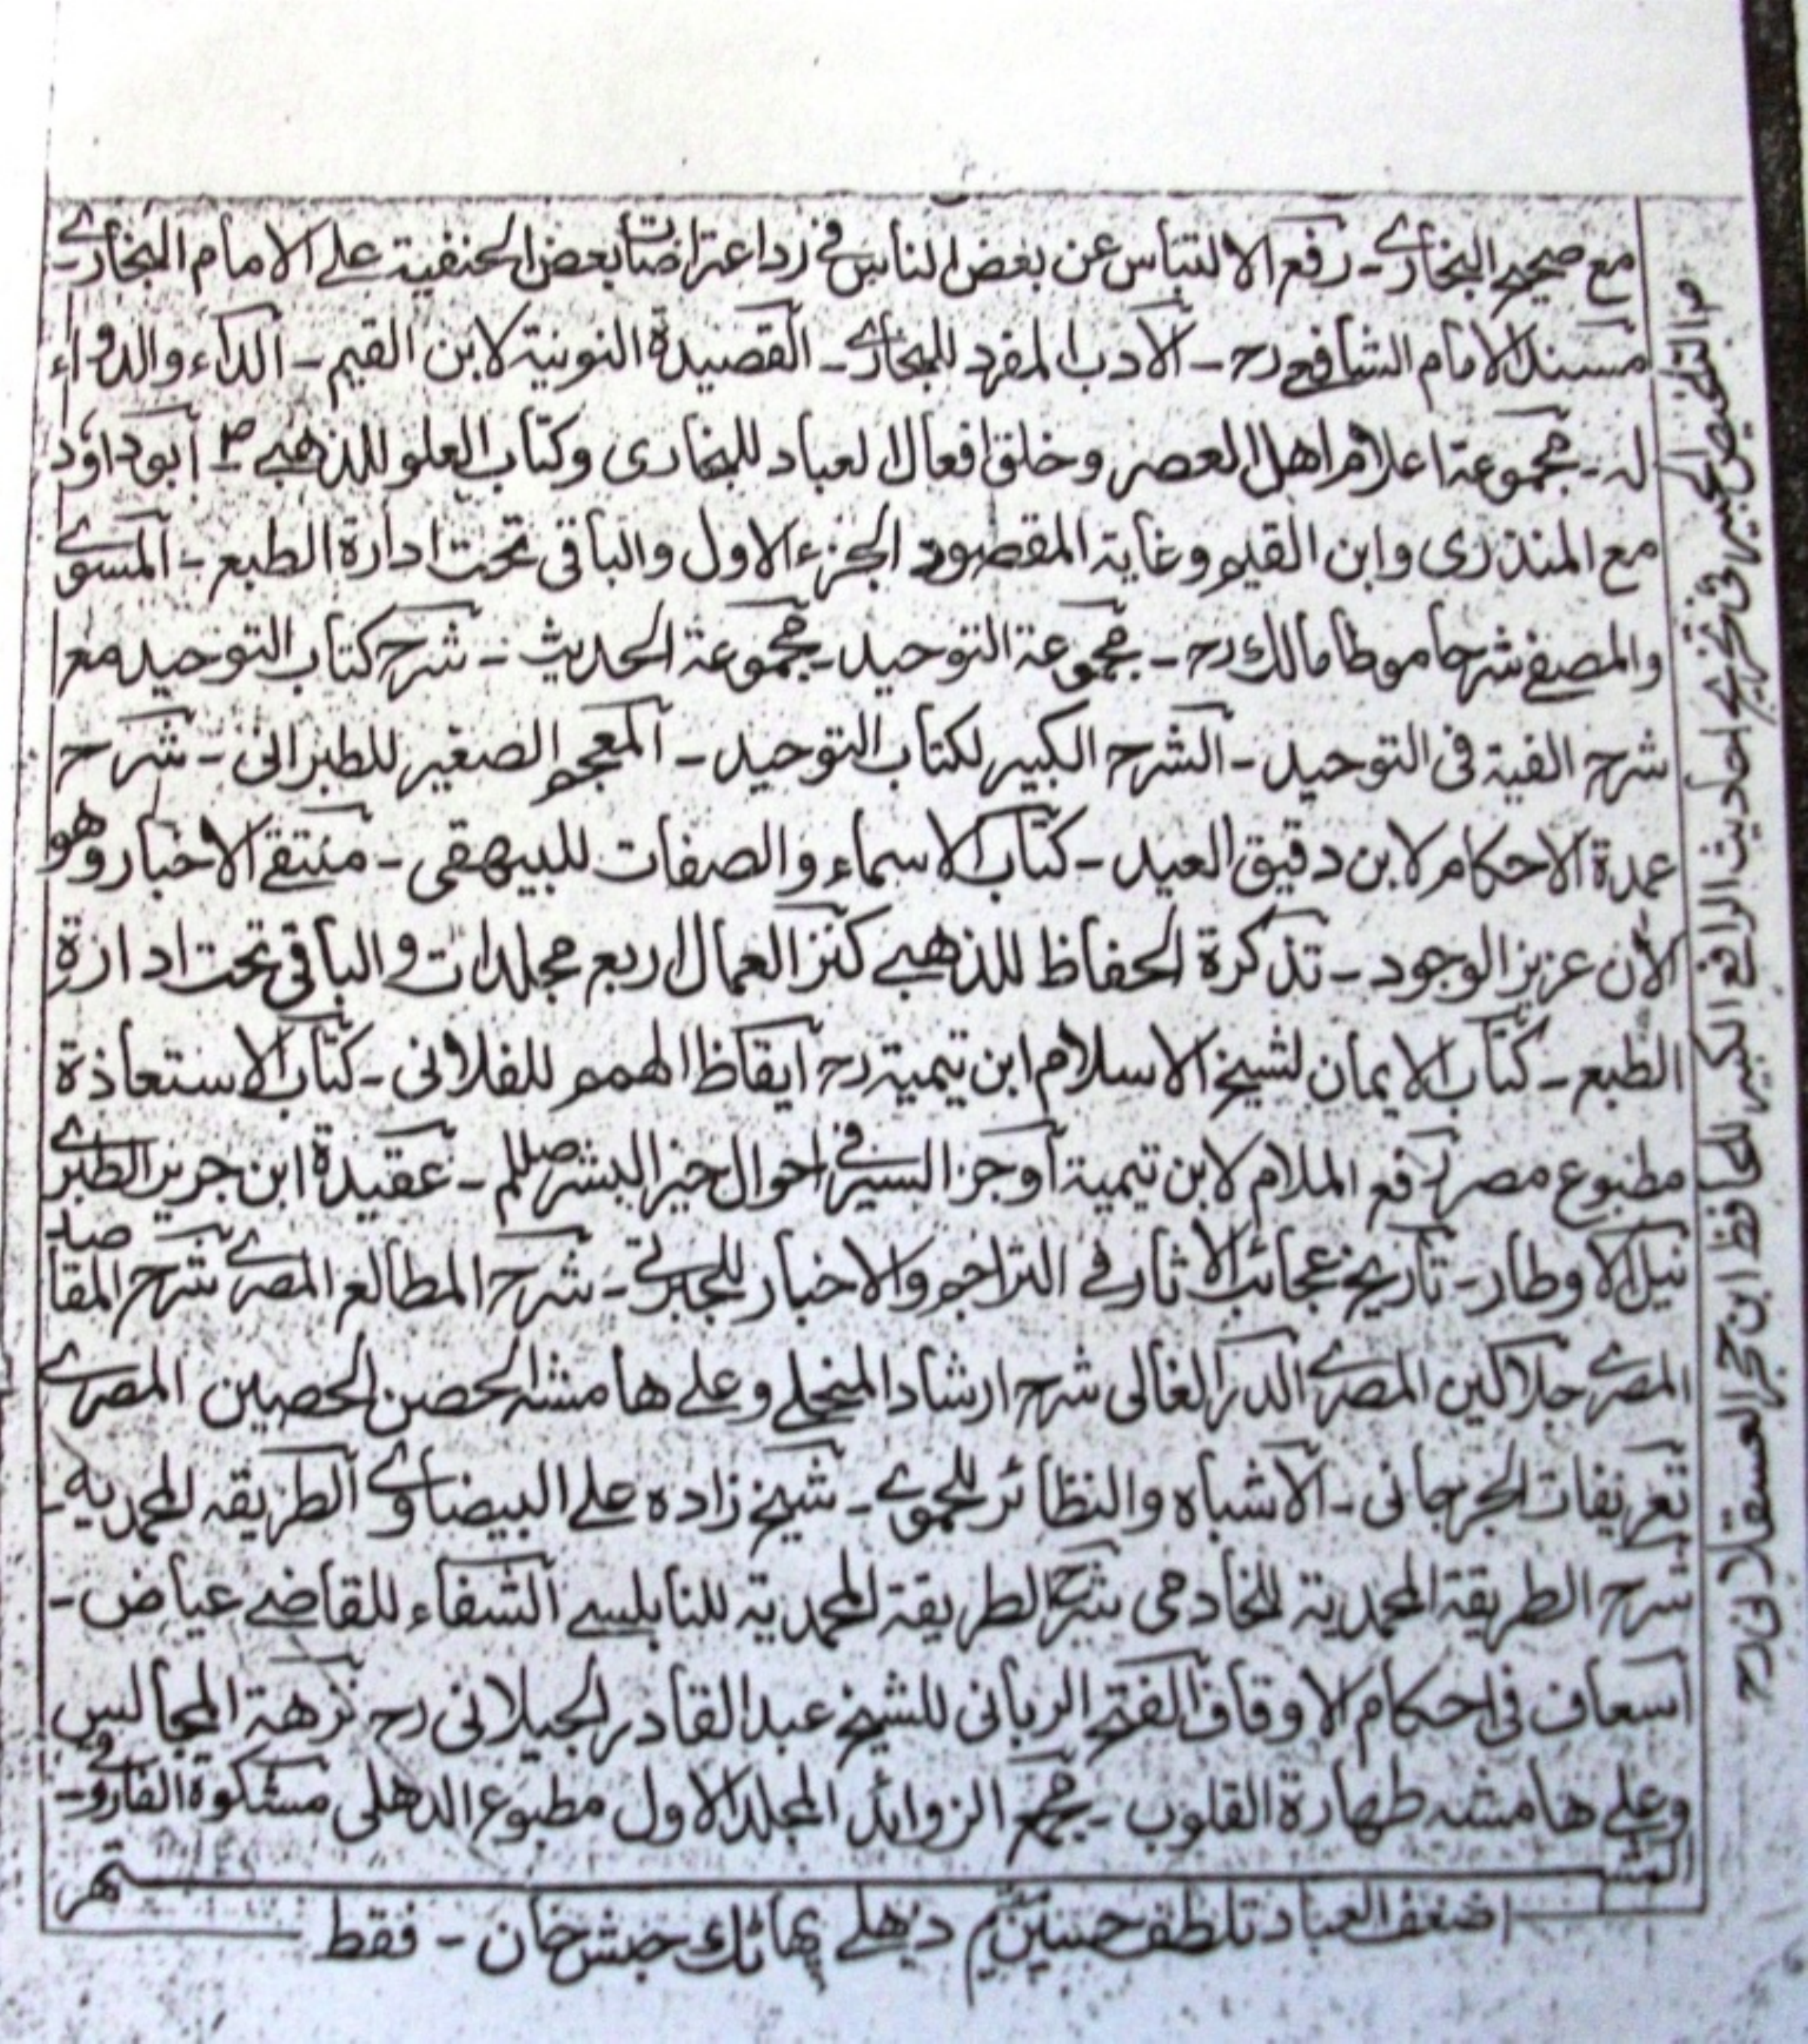 مع صحيح البخاري ـ رفع الالتباس عن بعض الناس في رد اعتراضات بعض الحنفية على الامام البخاري ـ
مسند الامام الشافعي رح ـ الادب المفرد للبخاري ـ القصيدة النونية لابن القيم ـ الداء والدواء
له ـ مجموعة اعلام اهل العصر وخلق افعال العباد للبخاري وكتاب العلو للذهبي ـ ابوداؤد
مع المنذري وابن القيم وغاية المقصود الجزء الاول والباقي تحت ادارة الطبع ـ المسوى
والمصفى شرحا موطا مالك رح ـ مجموعة التوحيد ـ مجموعة الحديث ـ شرح كتاب التوحيد مع
شرح الفية في التوحيد ـ الشرح الكبير لكتاب التوحيد ـ المعجم الصغير للطبراني ـ شرح
عمدة الاحكام لابن دقيق العيد ـ كتاب الاسماء والصفات للبيهقي ـ منتقى الاخبار وهو
الأن عزيز الوجود ـ تذكرة الحفاظ للذهبي كنز العمال اربع مجلدات والباقي تحت ادارة
الطبع ـ كتاب الايمان لشيخ الاسلام ابن تيمية رح ايقاظ الهمم للفلاني ـ كتاب الاستعاذة
مطبوع مصر رفع الملام لابن تيمية أوجز السير في احوال خير البشر صللم ـ عقيدة ابن جرير الطبري
نيل الاوطار ـ تاريخ عجائب الاثار في التراجم والاخبار للجبرتي ـ شرح المطالع المصري شرح المقاصد
المصري جلالين المصري الدر الغالي شرح ارشاد المنجلي وعلى هامشه الحصن الحصين المصري
تعريفات الجرجاني ـ الاشباه والنظائر للحموي ـ شيخ زاده على البيضاوي الطريقه المحمديه ـ
شرح الطريقة المحمدية للخادمي شرح الطريقة المحمدية للنابلسي الشفاء للقاضي عياض ـ
اسعاف في احكام الاوقاف الفتح الرباني للشيخ عبد القادر الجيلاني رح نزهة المجالس
وعلى هامشه طهارة القلوب ـ مجمع الزوائد المجلد الاول مطبوع الدهلي مشكوة الفاروقي ـ
المشتهر
اضعف العباد تلطف حسين دهلي پهاٹك حبش خان ـ فقط
التلخيص الحبير في تخريج احاديث الرافعي الكبير للحافظ ابن حجر العسقلاني رح